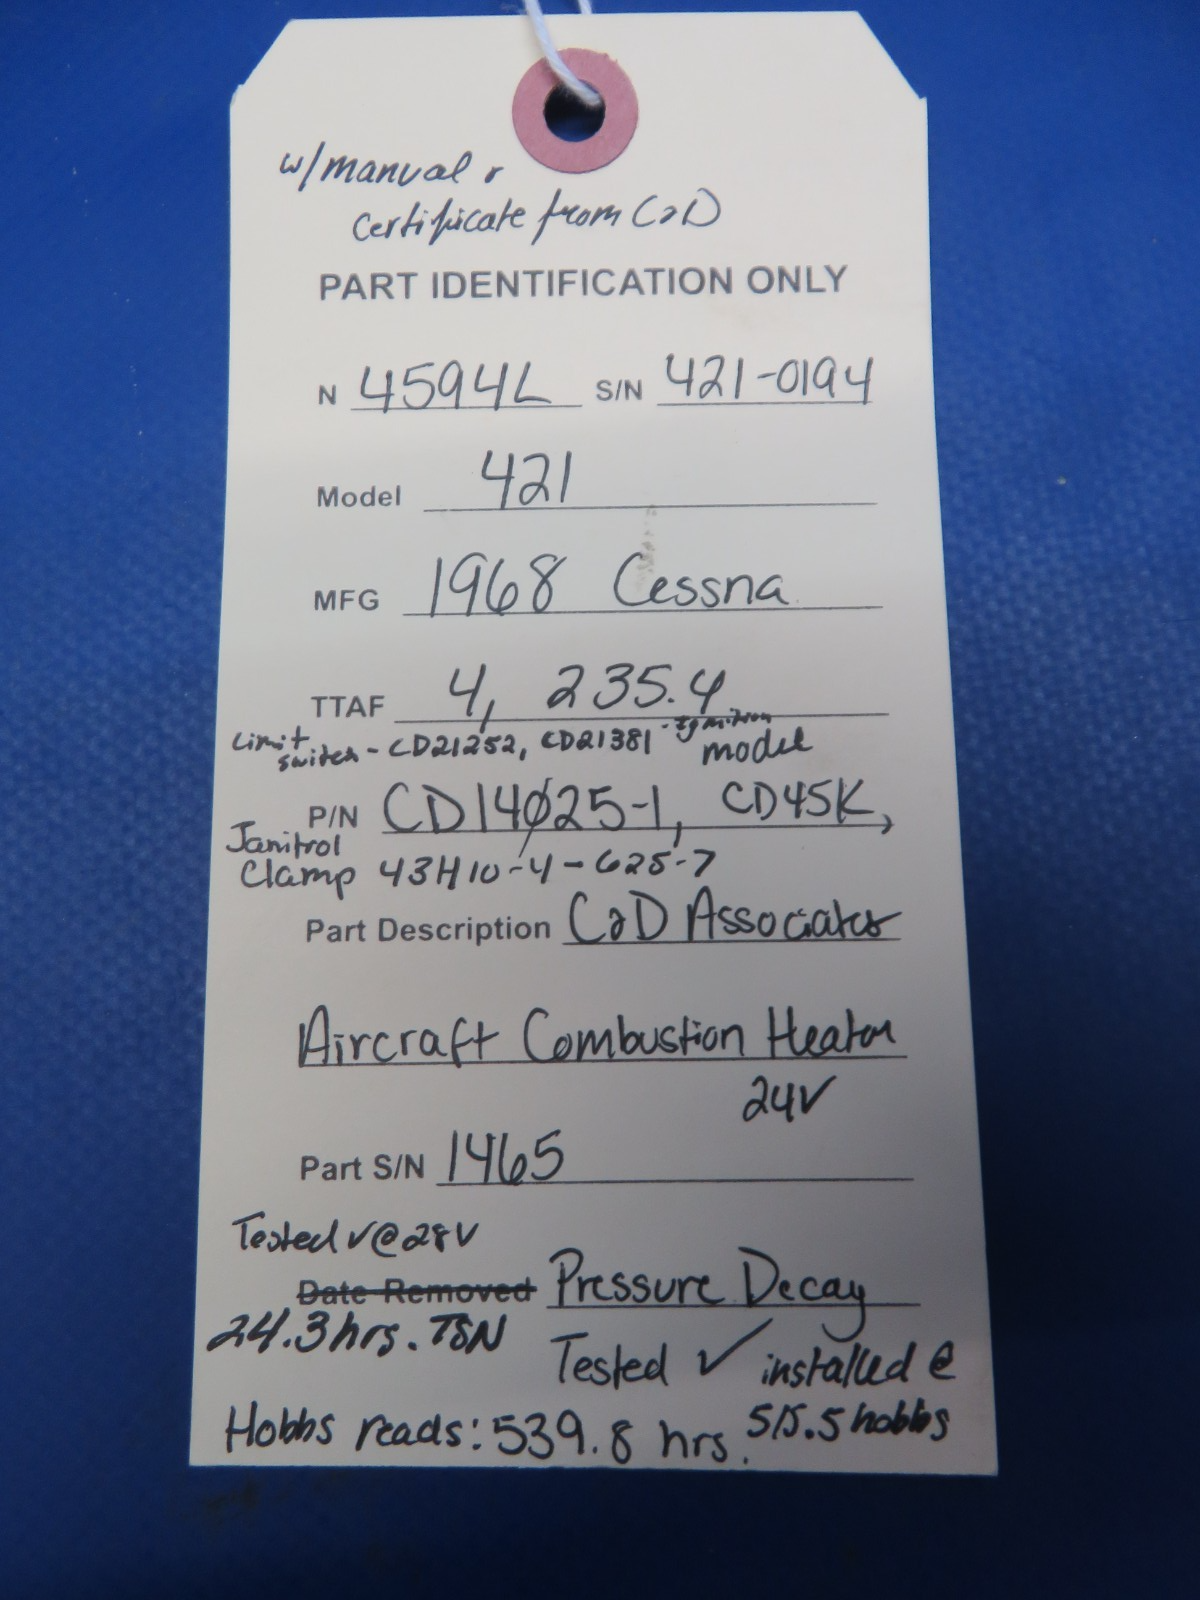 w/manual &
certificate from C&D
PART IDENTIFICATION ONLY
N 4594L S/N 421-0194
Model 421
MFG 1968 Cessna
TTAF 4, 235.4
Limit switch - CD21252, CD21381 - Ignition
model
P/N CD14Ø25-1, CD45K,
Janitrol
Clamp 43H10-4-625-7
Part Description C&D Associates
Aircraft Combustion Heater
24V
Part S/N 1465
Tested ✓ @ 28V
Date Removed Pressure Decay
24.3 hrs. TSN
Tested ✓ installed @
Hobbs reads: 539.8 hrs. 515.5 hobbs